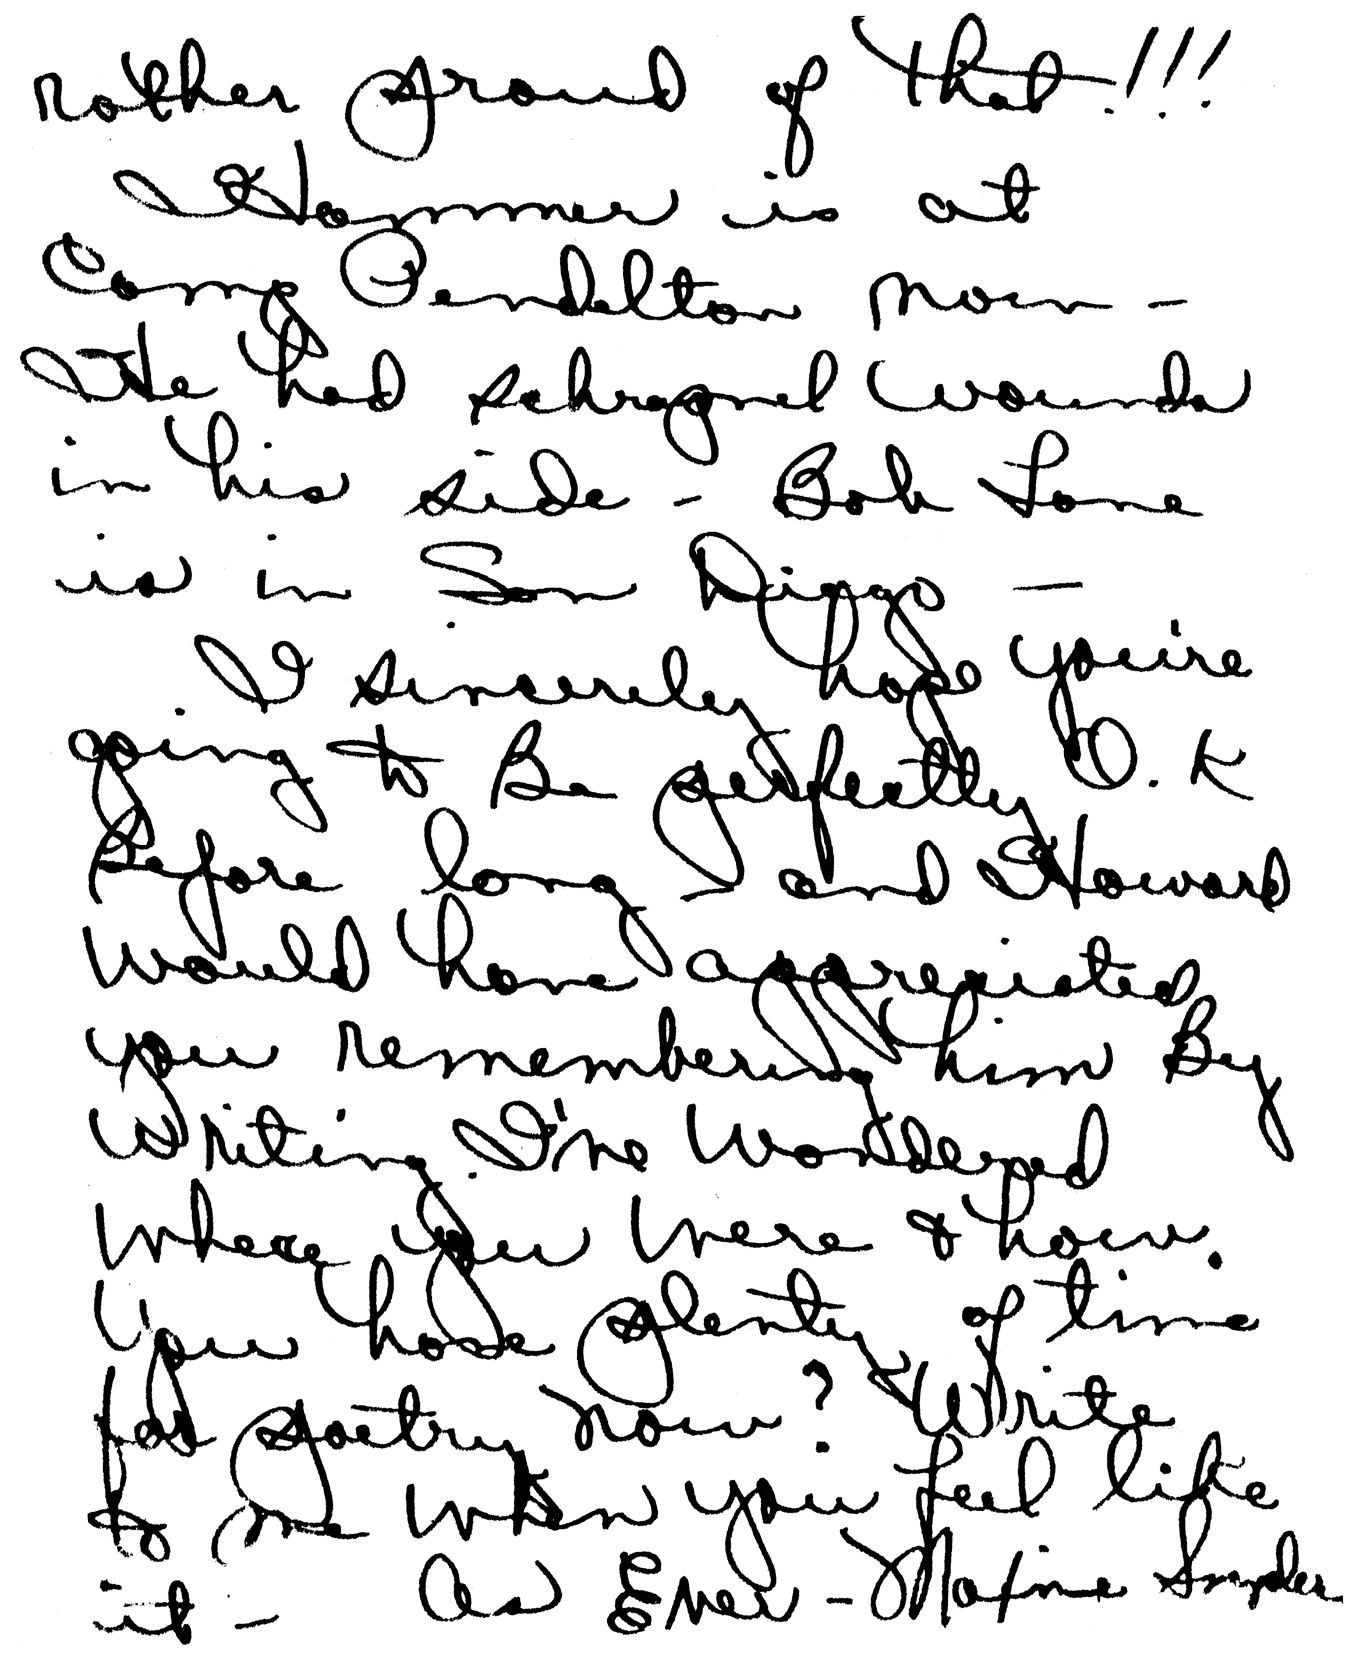 rather proud of that!!!
Hammer is at
Camp Pendelton now -
He had schrapnel wounds
in his side - Bob Lane
is in San Diago -
I sincerely hope you're
going to Be perfectly O.K
Before long - and Howard
would have appreciated
you remembering him By
writing. I've wondered
where you were & how.
You have plenty of time
for poetry now? Write
to me when you feel like
it - As Ever - Maxine Snyder